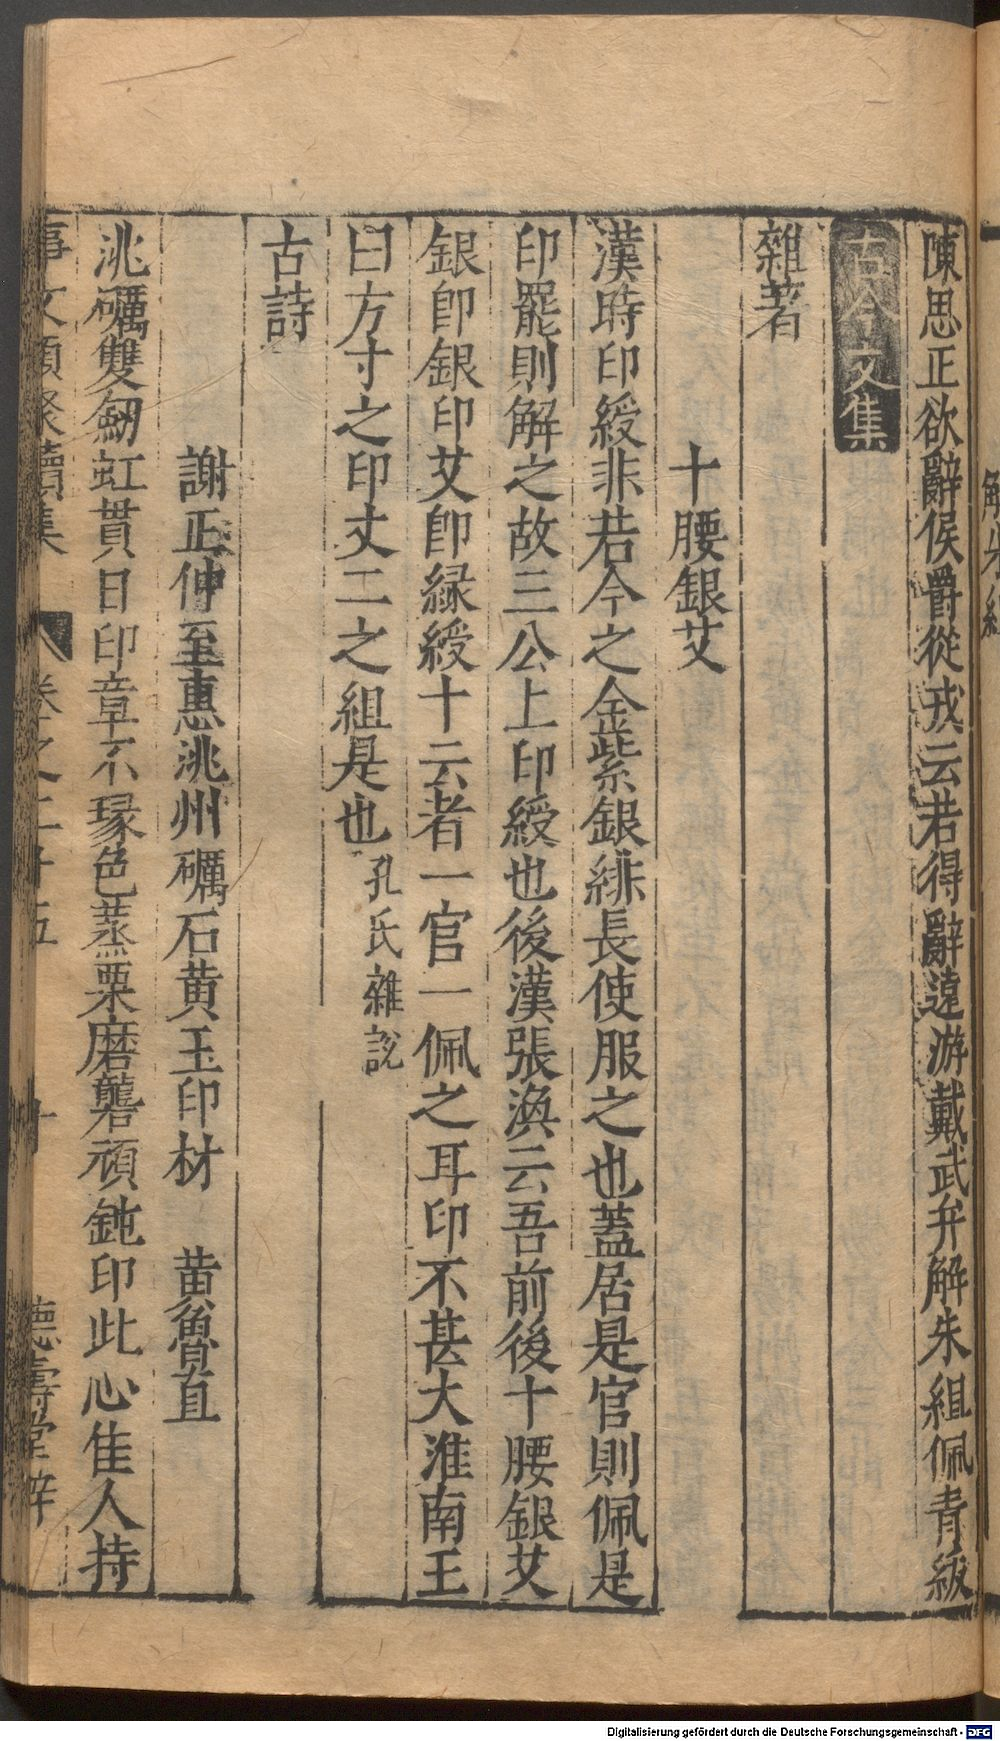 陳思正欲辭侯爵從戎云若得辭遠游戴武弁解朱組佩青紱
古今文集
雜著
十腰銀艾
漢時印綬非若今之金紫銀緋長使服之也蓋居是官則佩是
印罷則解之故三公上印綬也後漢張渙云吾前後十腰銀艾
銀卽銀印艾卽緑綬十云者一官一佩之耳印不甚大淮南王
曰方寸之印丈二之組是也孔氏雜説
古詩
謝王仲至惠洮州礪石黄玉印材 黄魯直
洮礪雙劒虹貫日印章不瑑色蒸栗磨礱頑鈍印此心隹人持
事文類聚續集 卷之二十五 十 德壽堂梓
解朱組
Digitalisierung gefördert durch die Deutsche Forschungsgemeinschaft - DFG